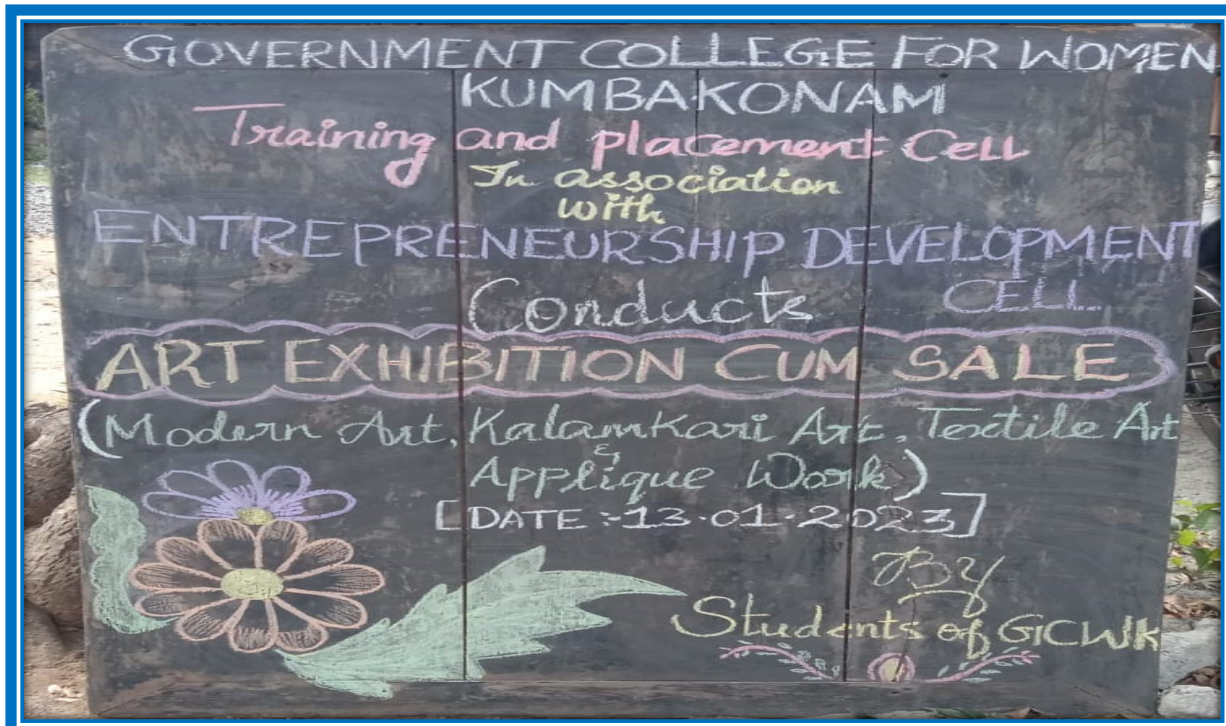 GOVERNMENT COLLEGE FOR WOMEN
KUMBAKONAM
Training and placement Cell
In association
with
ENTREPRENEURSHIP DEVELOPMENT
CELL
Conducts
ART EXHIBITION CUM SALE
(Modern Art, Kalamkari Art, Textile Art
&
Applique Work)
[DATE :- 13-01-2023]
By
Students of GCWK